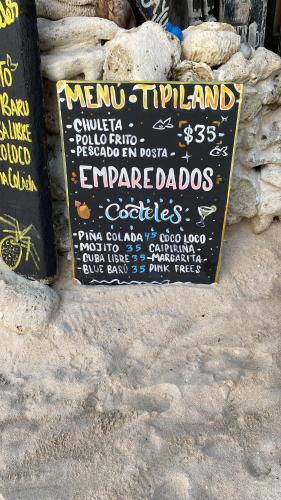 MENU • TIPILAND
- CHULETA
- POLLO FRITO - $35 -
- PESCADO EN POSTA -
EMPAREDADOS
Cocteles
- PIÑA COLADA 45 COCO LOCO
- MOJITO 35 CAIPIRIÑA -
- CUBA LIBRE 35 - MARGARITA -
- BLUE BARÚ 35 PINK FREES
BARU
LIBRE
OLOCO
COLADA